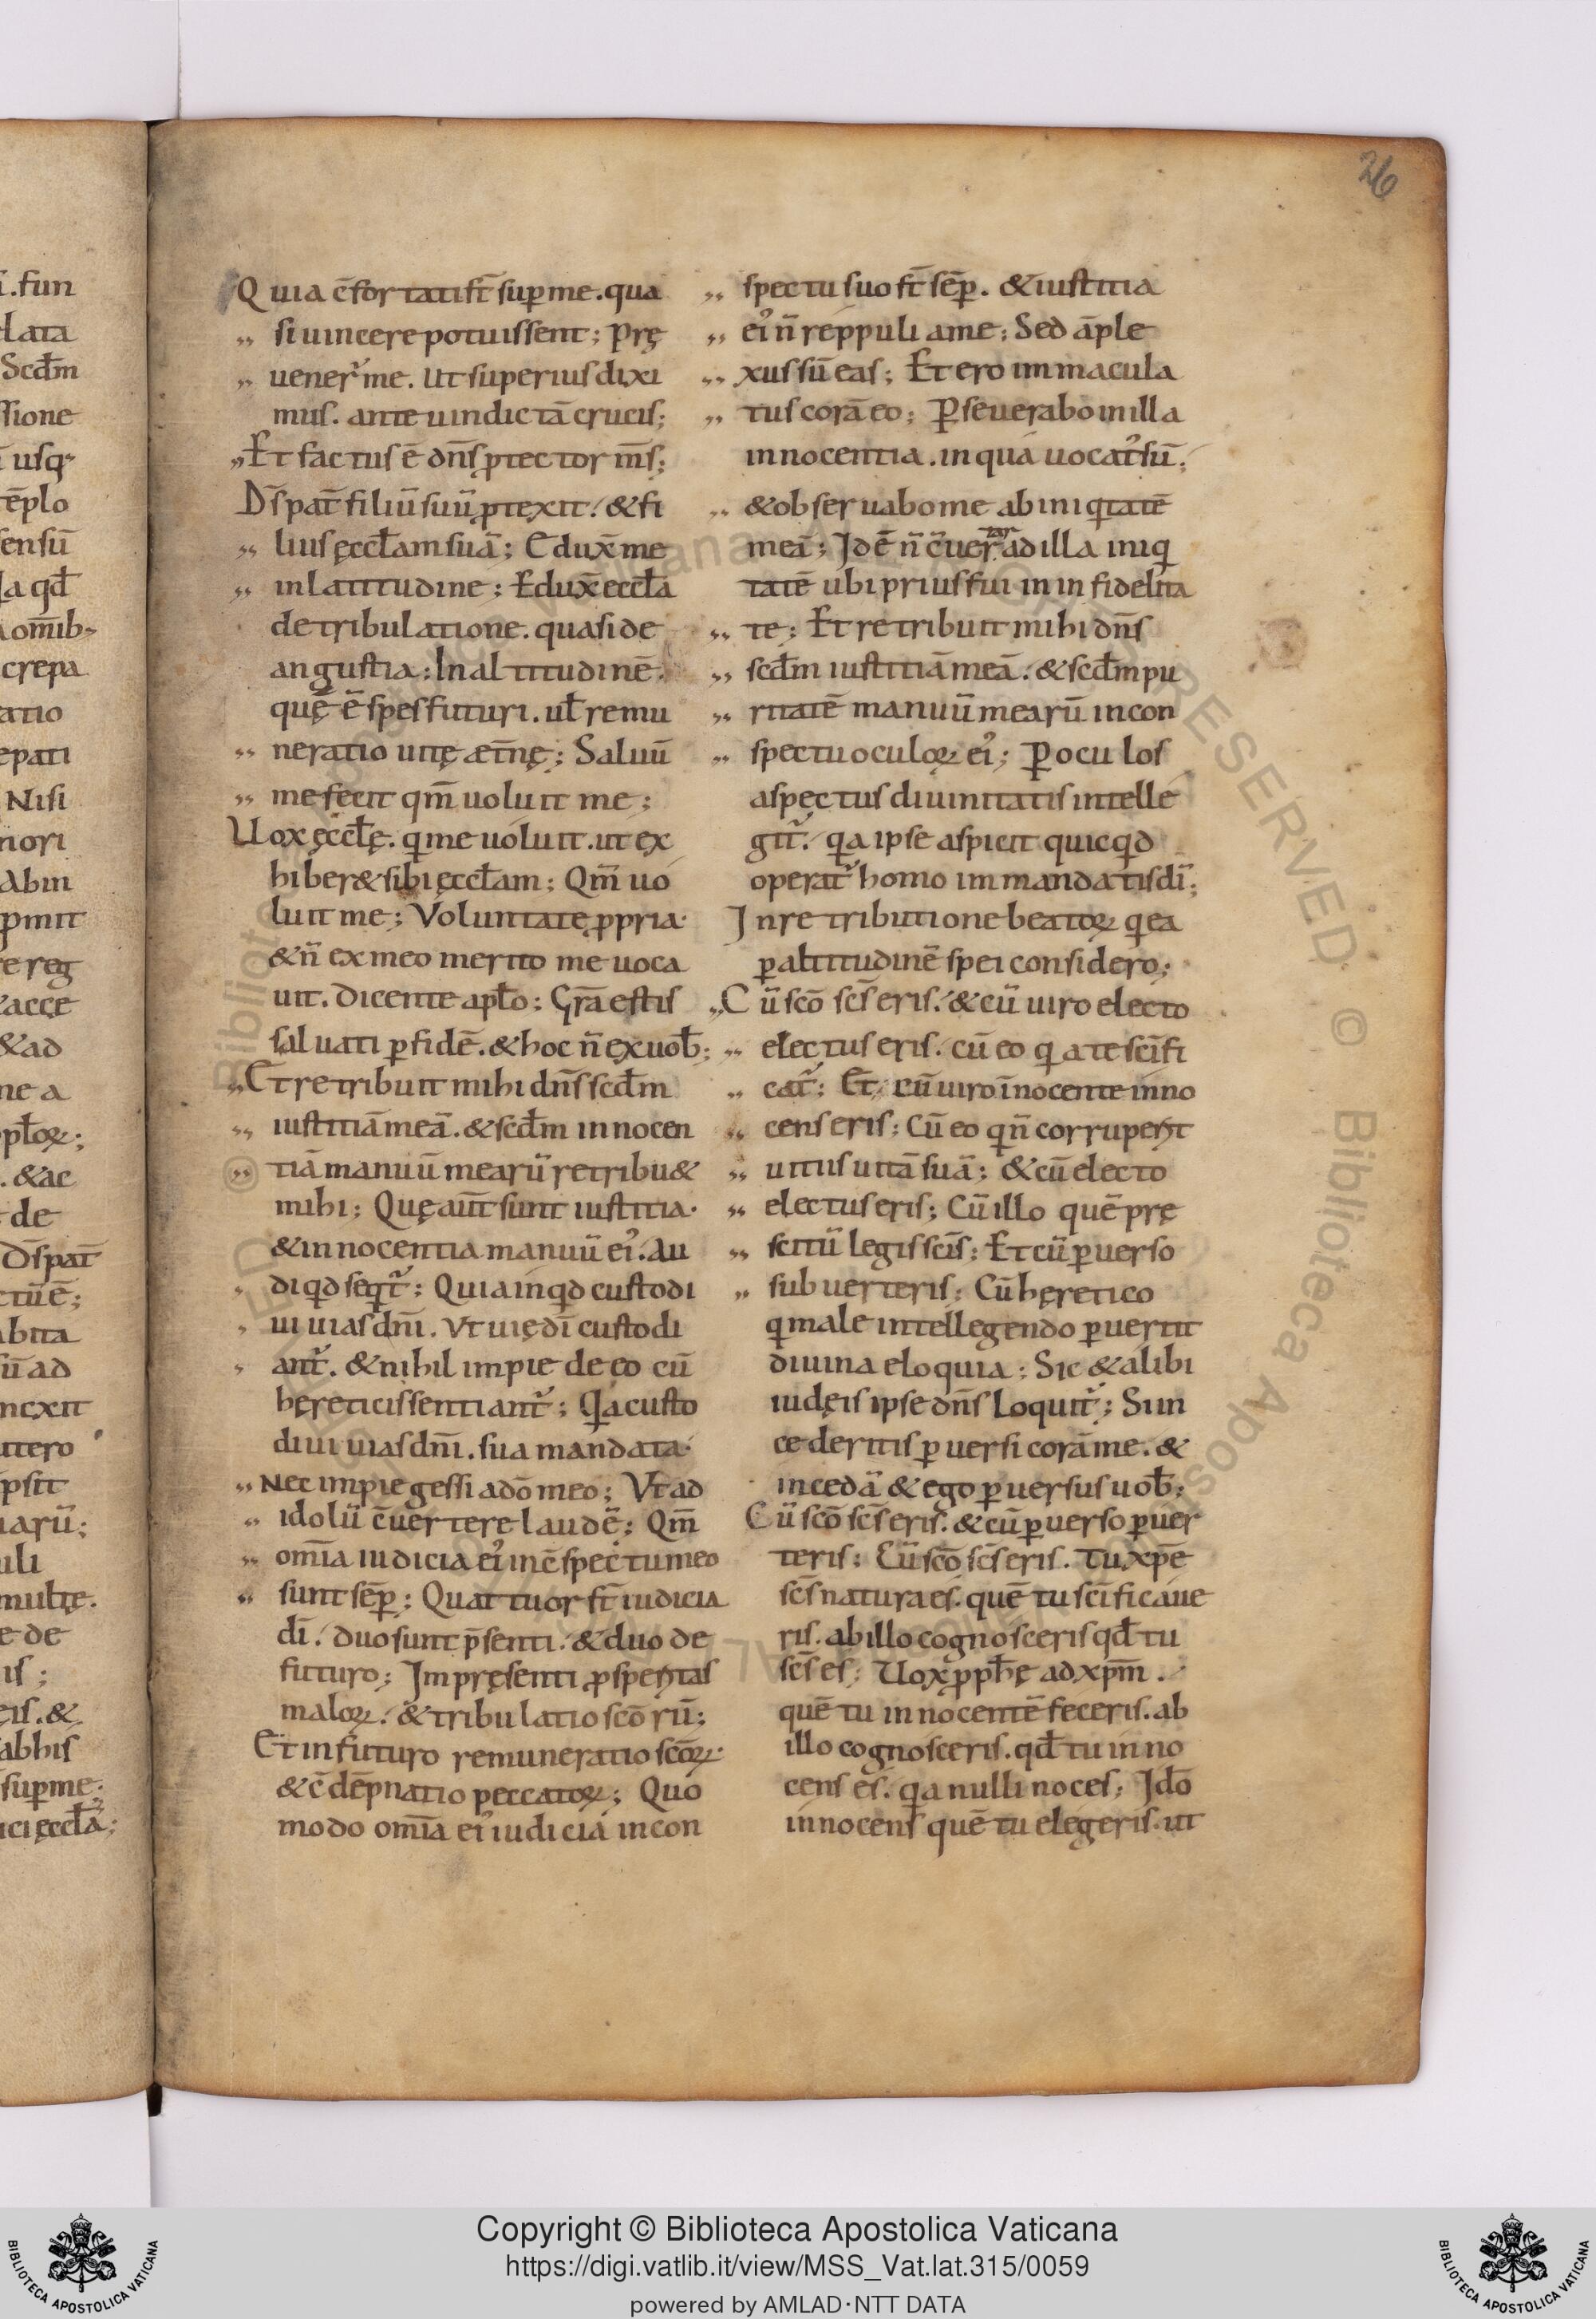 26
ı̄. fun
elata
Scđm
ssione
ā usq;
tēplo
sensū
la qđ
aom̄ib;
crepa
atio
epati
Nisi
nori
Abin
pmit
re reg
&acce
&ad
ne a
pƚoꝝ;
. &ac
t de
D̄s pat̄
ctū ē;
abita
sū ad
incxit
utero
ipsit
uarū;
uli
multę.
e de
is;
ęis. &
abhis
sup me;
ici ęccƚa;
Quia c̄fortati sƚ̄ sup me. qua
si uincere potuissent; Prę
uener̄ me. ut superius dixi
mus. ante uindictā crucis;
Et factus ē dn̄s ꝓtector m̄s;
D̄s pat̄ filiū suū ꝓtexit. & fi
lius ęccƚam suā; Edux̄ me
in latitudine; Edux̄ eccƚa
de tribulatione. quasi de
angustia; In altitudinē.
quę ē spes futuri. uƚ remu
neratio uitę æt̄nę; Saluū
me fecit qm̄ uoluit me;
Uox ęccƚę. qi me uoluit. ut ex
hiber& sibi ęccƚam; Qm̄ uo
luit me; Voluntate ꝓpria.
& n̄ ex meo merito me uoca
uit. Dicente apƚo; Gr̄a estis
saluati ꝑ fidē. & hoc n̄ ex uob̄;
Et retribuit mihi dn̄s scđm
iustitiā meā. & scđm innocen
tiā manuū mearū retribu&
mihi; Quę aut̄ sunt iustitia.
& innocentia manuū ei᾽. Au
di qđ seqt̄; Quia inqđ custodi
ui uias dn̄i. Vt uię dı̄ custodi
ant̄. & nihil impie de eo cū
hereticis sentiant̄; Qa custo
diui uias dn̄i. sua mandata.
Nec impie gessi a dō meo; Vt ad
idolū c̄uertere laudē; Qm̄
om̄ia iudicia ei᾽ in c̄spectu meo
sunt sēꝑ; Quattuor sƚ̄ iudicia
dı̄. duo sunt p̄senti. & duo de
futuro; Im pręsenti ꝓsperitas
maloꝝ. & tribulatio scōrū;
Et in futuro remuneratio scōꝝ.
& c̄ dēpnatio peccatoꝝ; Quo
modo om̄ia ei᾽ iudicia in con
spectu suo sƚ̄ sēꝑ. & iustitia
ei᾽ n̄ reppuli a me; Sed āple
xus sū eas; Et ero immacula
tus corā eo; Ꝑseuerabo in illa
innocentia. in qua uocat᾽ sū;
& obseruabo me ab iniqitatē
meā; Idē n̄ c̄uertar ad illa iniqi
tatē ubi prius fui in infidelita
te; Et retribuit mihi dn̄s
scđm iustitiā meā. & scđm pu
ritatē manuū mearū in con
spectu oculoꝝ ei᾽; Ꝑ oculos
aspectus diuinitatis intelle
git̄. qa ipse aspicit quicqđ
operat̄ homo im mandatis dı̄;
In retributione beatoꝝ qi ea
ꝑ altitudinē spei considero;
Cū scō scs̄ eris. & cū uiro electo
electus eris. cū eo qi a te scı̄fi
cat̄; Et cū uiro īnocente inno
cens eris; Cū eo qi n̄ corruperit
uitiis uitā suā; & cū electo
electus eris; Cū illo quē prę
scitū legis scı̄s; Et cū ꝑuerso
subuerteris; Cū hęretico
qi male intellegendo ꝑuertit
diuina eloquia; Sic & alibi
iudęis ipse dn̄s loquit̄; Si in
cederitis ꝑuersi corā me. &
incedā & ego ꝑuersus uob̄;
Cū scō scs̄ eris. & cū ꝑuerso ꝑuer
teris; Cū scō scs̄ eris. Tu xp̄e
scs̄ natura es. quē tu scı̄ficaue
ris. ab illo cognosceris qđ tu
scs̄ es; Uox ꝓph̄ę ad xp̄m.
quē tu innocentē feceris. ab
illo cognosceris. qđ tu inno
cens es. qa nulli noces; Idō
innocens quē tu elegeris. ut
Copyright © Biblioteca Apostolica Vaticana
https://digi.vatlib.it/view/MSS_Vat.lat.315/0059
powered by AMLAD·NTT DATA
BIBLIOTECA APOSTOLICA VATICANA
BIBLIOTECA APOSTOLICA VATICANA